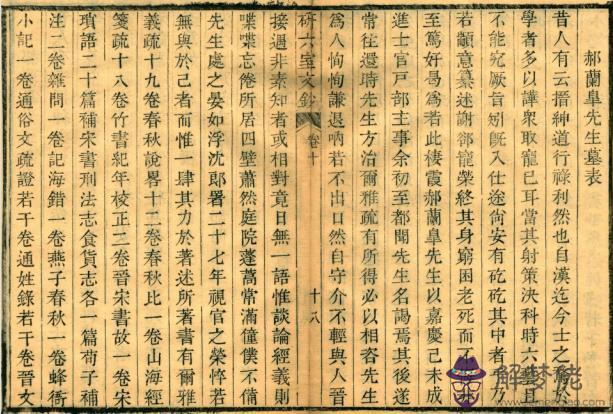 郝蘭皐先生墓表
昔人有云搢紳道行祿利然也自漢迄今士之
學者多以譁衆取寵已耳當其射策決科時六藝且
不能究厥旨矧既入仕途尚安有矻矻其中者乃
若顓意墓述謝郤寵榮終其身窮困老死而不
至篤好曷爲若此棲霞郝蘭皐先生以嘉慶己未成
進士官戸部主事余初至都聞先生名謁焉其後遂
常往還時先生方治爾雅疏有所得必以相咨先生
爲人恂恂謙退吶若不出口然自守介不輕與人晉
接遇非素知者或相對竟日無一語惟談論經義則
研六室文鈔
卷十
十八
喋喋忘倦所居四壁蕭然庭院蓬蒿常滿僮僕不備
先生處之晏如浮沈郞署二十七年視官之榮悴若
無與於己者而惟一肆其力於著述所著書有爾雅
義疏十九卷春秋說畧十二卷春秋比一卷山海經
箋疏十八卷竹書紀年校正三卷晉宋書故一卷宋
瑣語二十篇補宋書刑法志食貨志各一篇荀子補
注二卷雜問一卷記海錯一卷燕子春秋一卷蜂衙
小記一卷通俗文疏證若干卷通姓錄若干卷晉文
解夢佬